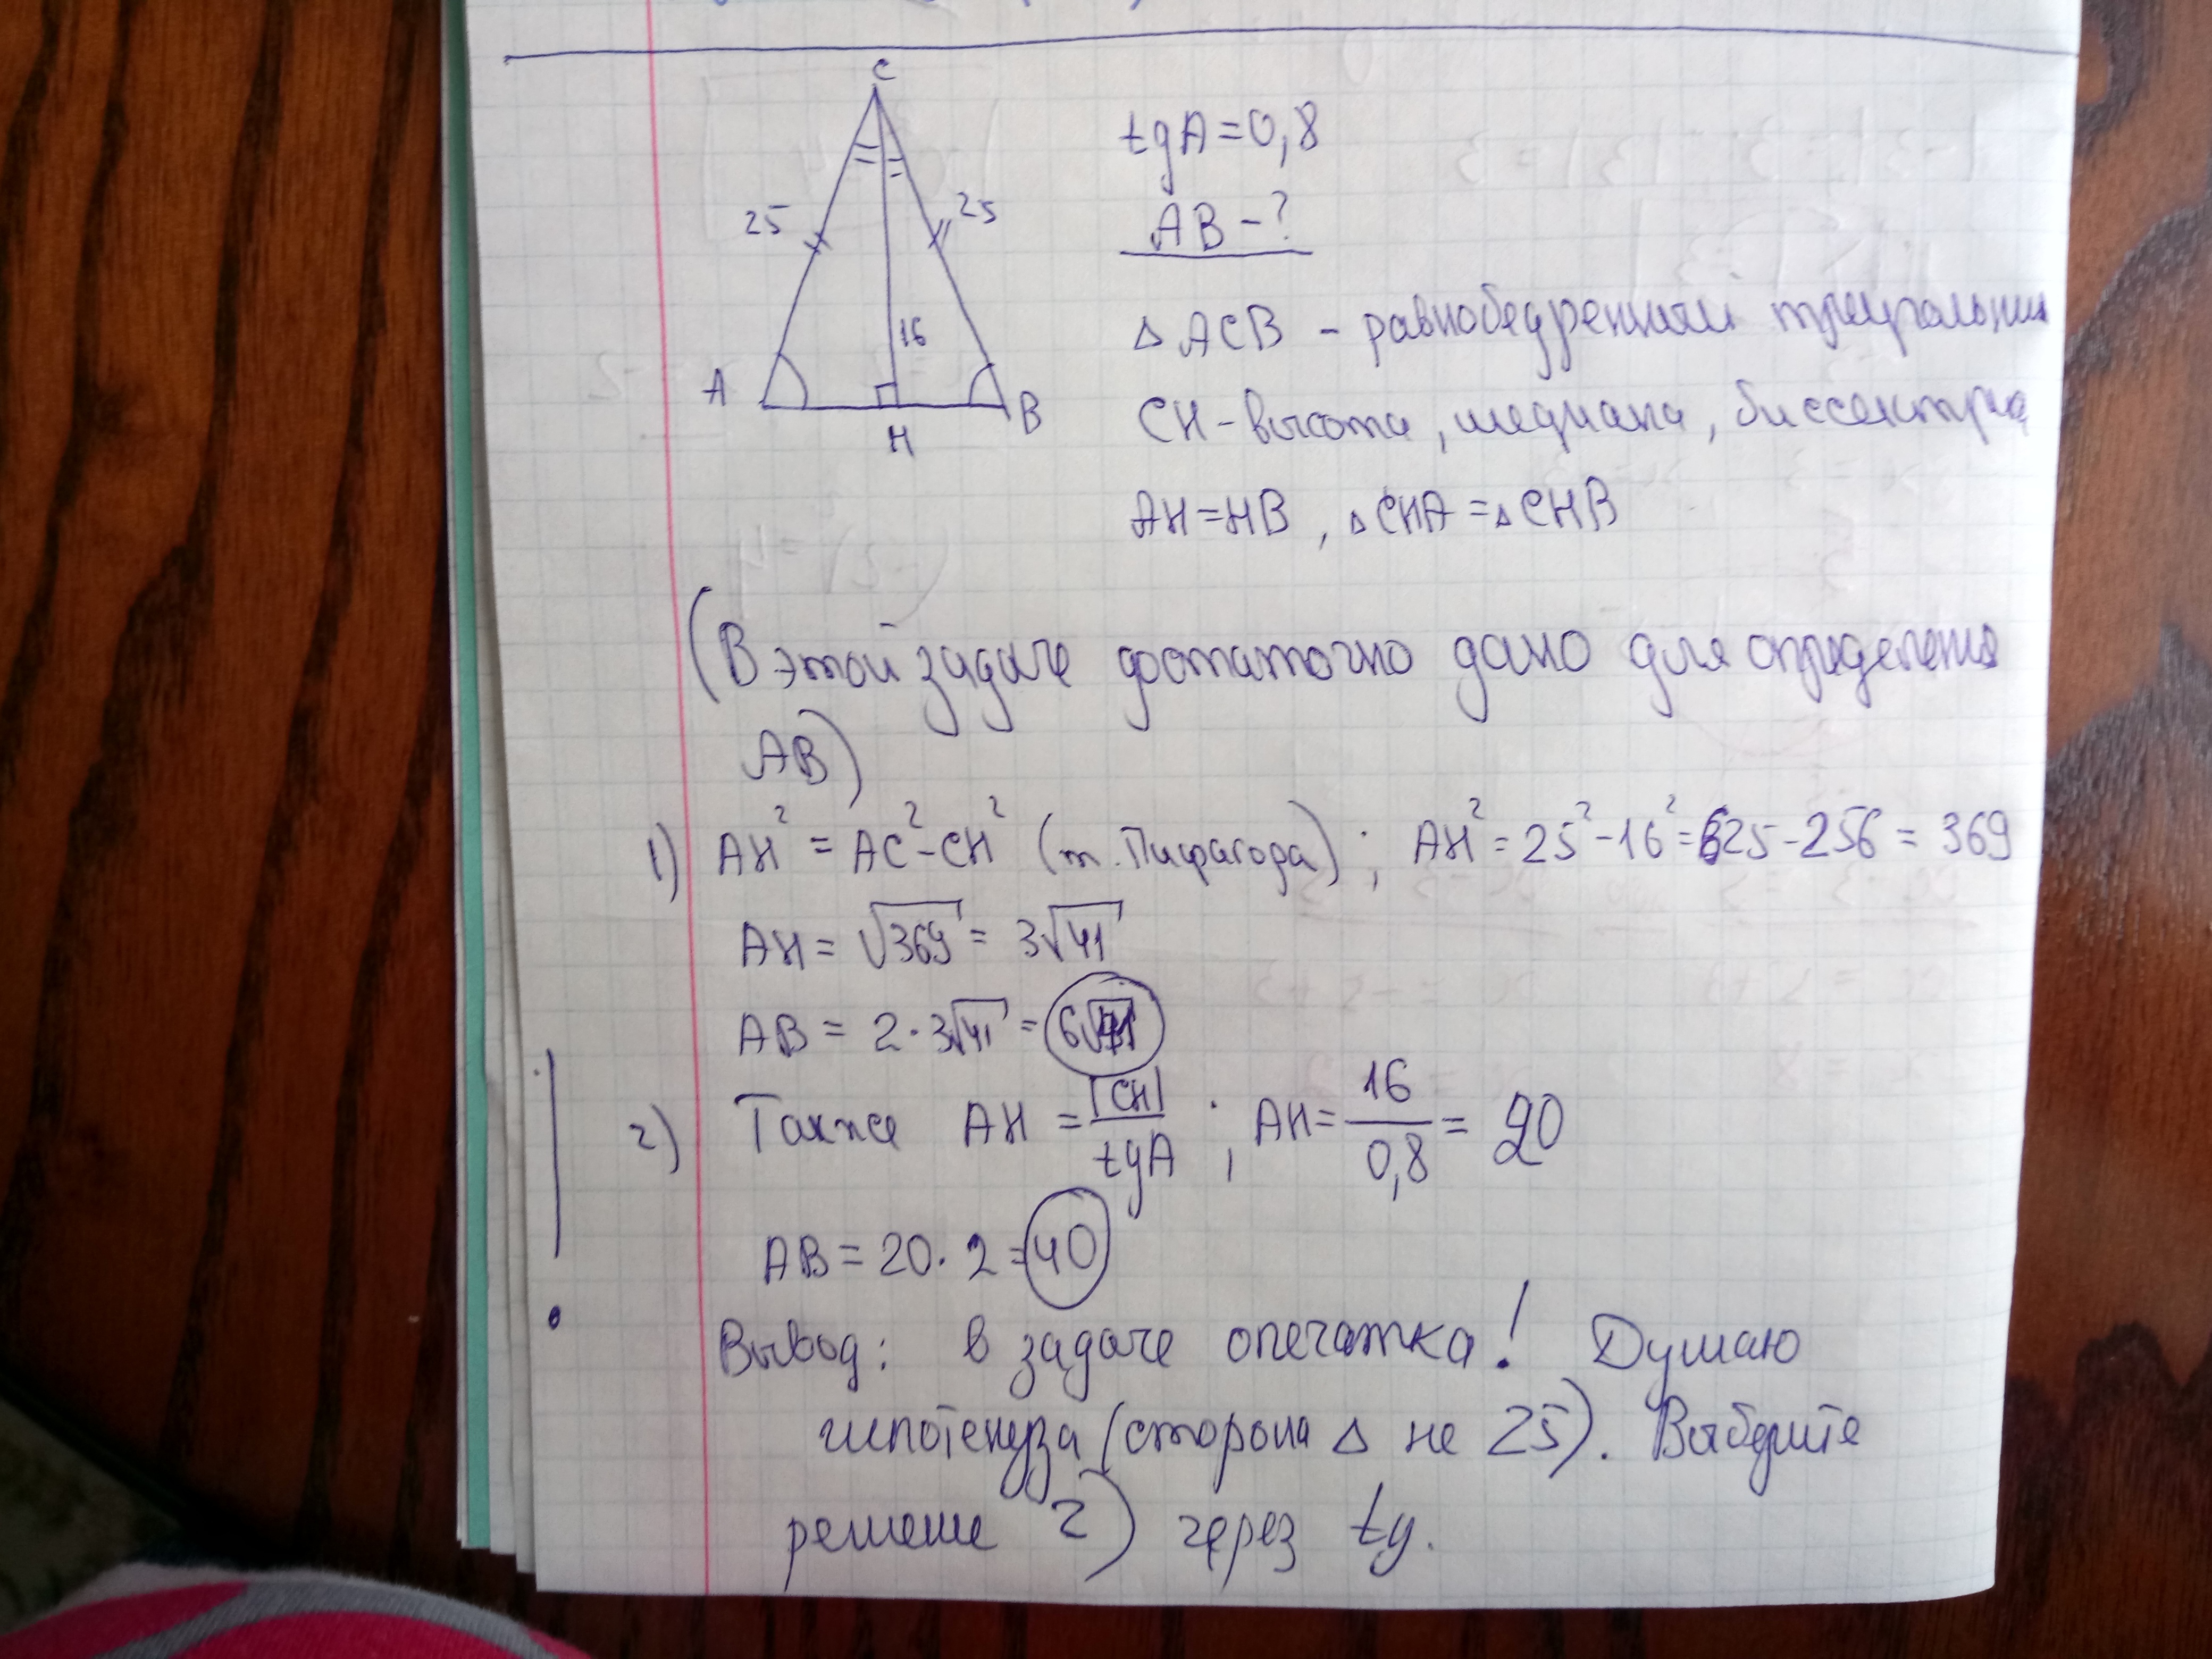 C
tgA=0,8
25
25
AB-?
16
A
H
B
△ ACB - равнобедренный треугольник
CH-высота, медиана, биссектриса
AH=HB, △CHA=△CHB
(В этой задаче достаточно дано для определения
AB)
1) AH²=AC²-CH² (т. Пифагора); AH²=25²-16²=625-256=369
AH=√369=3√41
AB=2·3√41=6√41
2) Также AH=|CH|/tgA; AH=16/0,8=20
AB=20·2=40
Вывод: в задаче опечатка! Думаю
гипотенуза (сторона △ не 25). Выберите
решение 2) через tg.